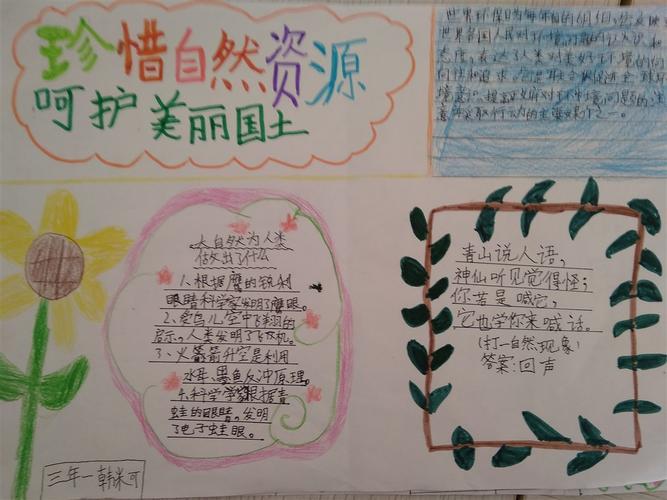 珍惜自然资源
呵护美丽国土
世界环保日为每年的6月5日,它反映
世界各国人民对环境问题的认识和
态度,表达了人类对美好环境的向
往和追求。它是联合国促进全球环
境意识、提高政府对环境问题的注
意并采取行动的主要媒介之一。
大自然为人类
做出了什么
1、根据鹰的锐利
眼睛科学家发明了鹰眼。
2、受鸟儿空中飞翔的
启示,人类发明了飞机。
3、火箭升空是利用
水母、墨鱼反冲原理。
4、科学家根据青
蛙的眼睛,发明
了电子蛙眼。
青山说人语,
神仙听见觉得怪;
你若是喊它,
它也学你来喊话。
(打一自然现象)
答案:回声
三年一韩米可